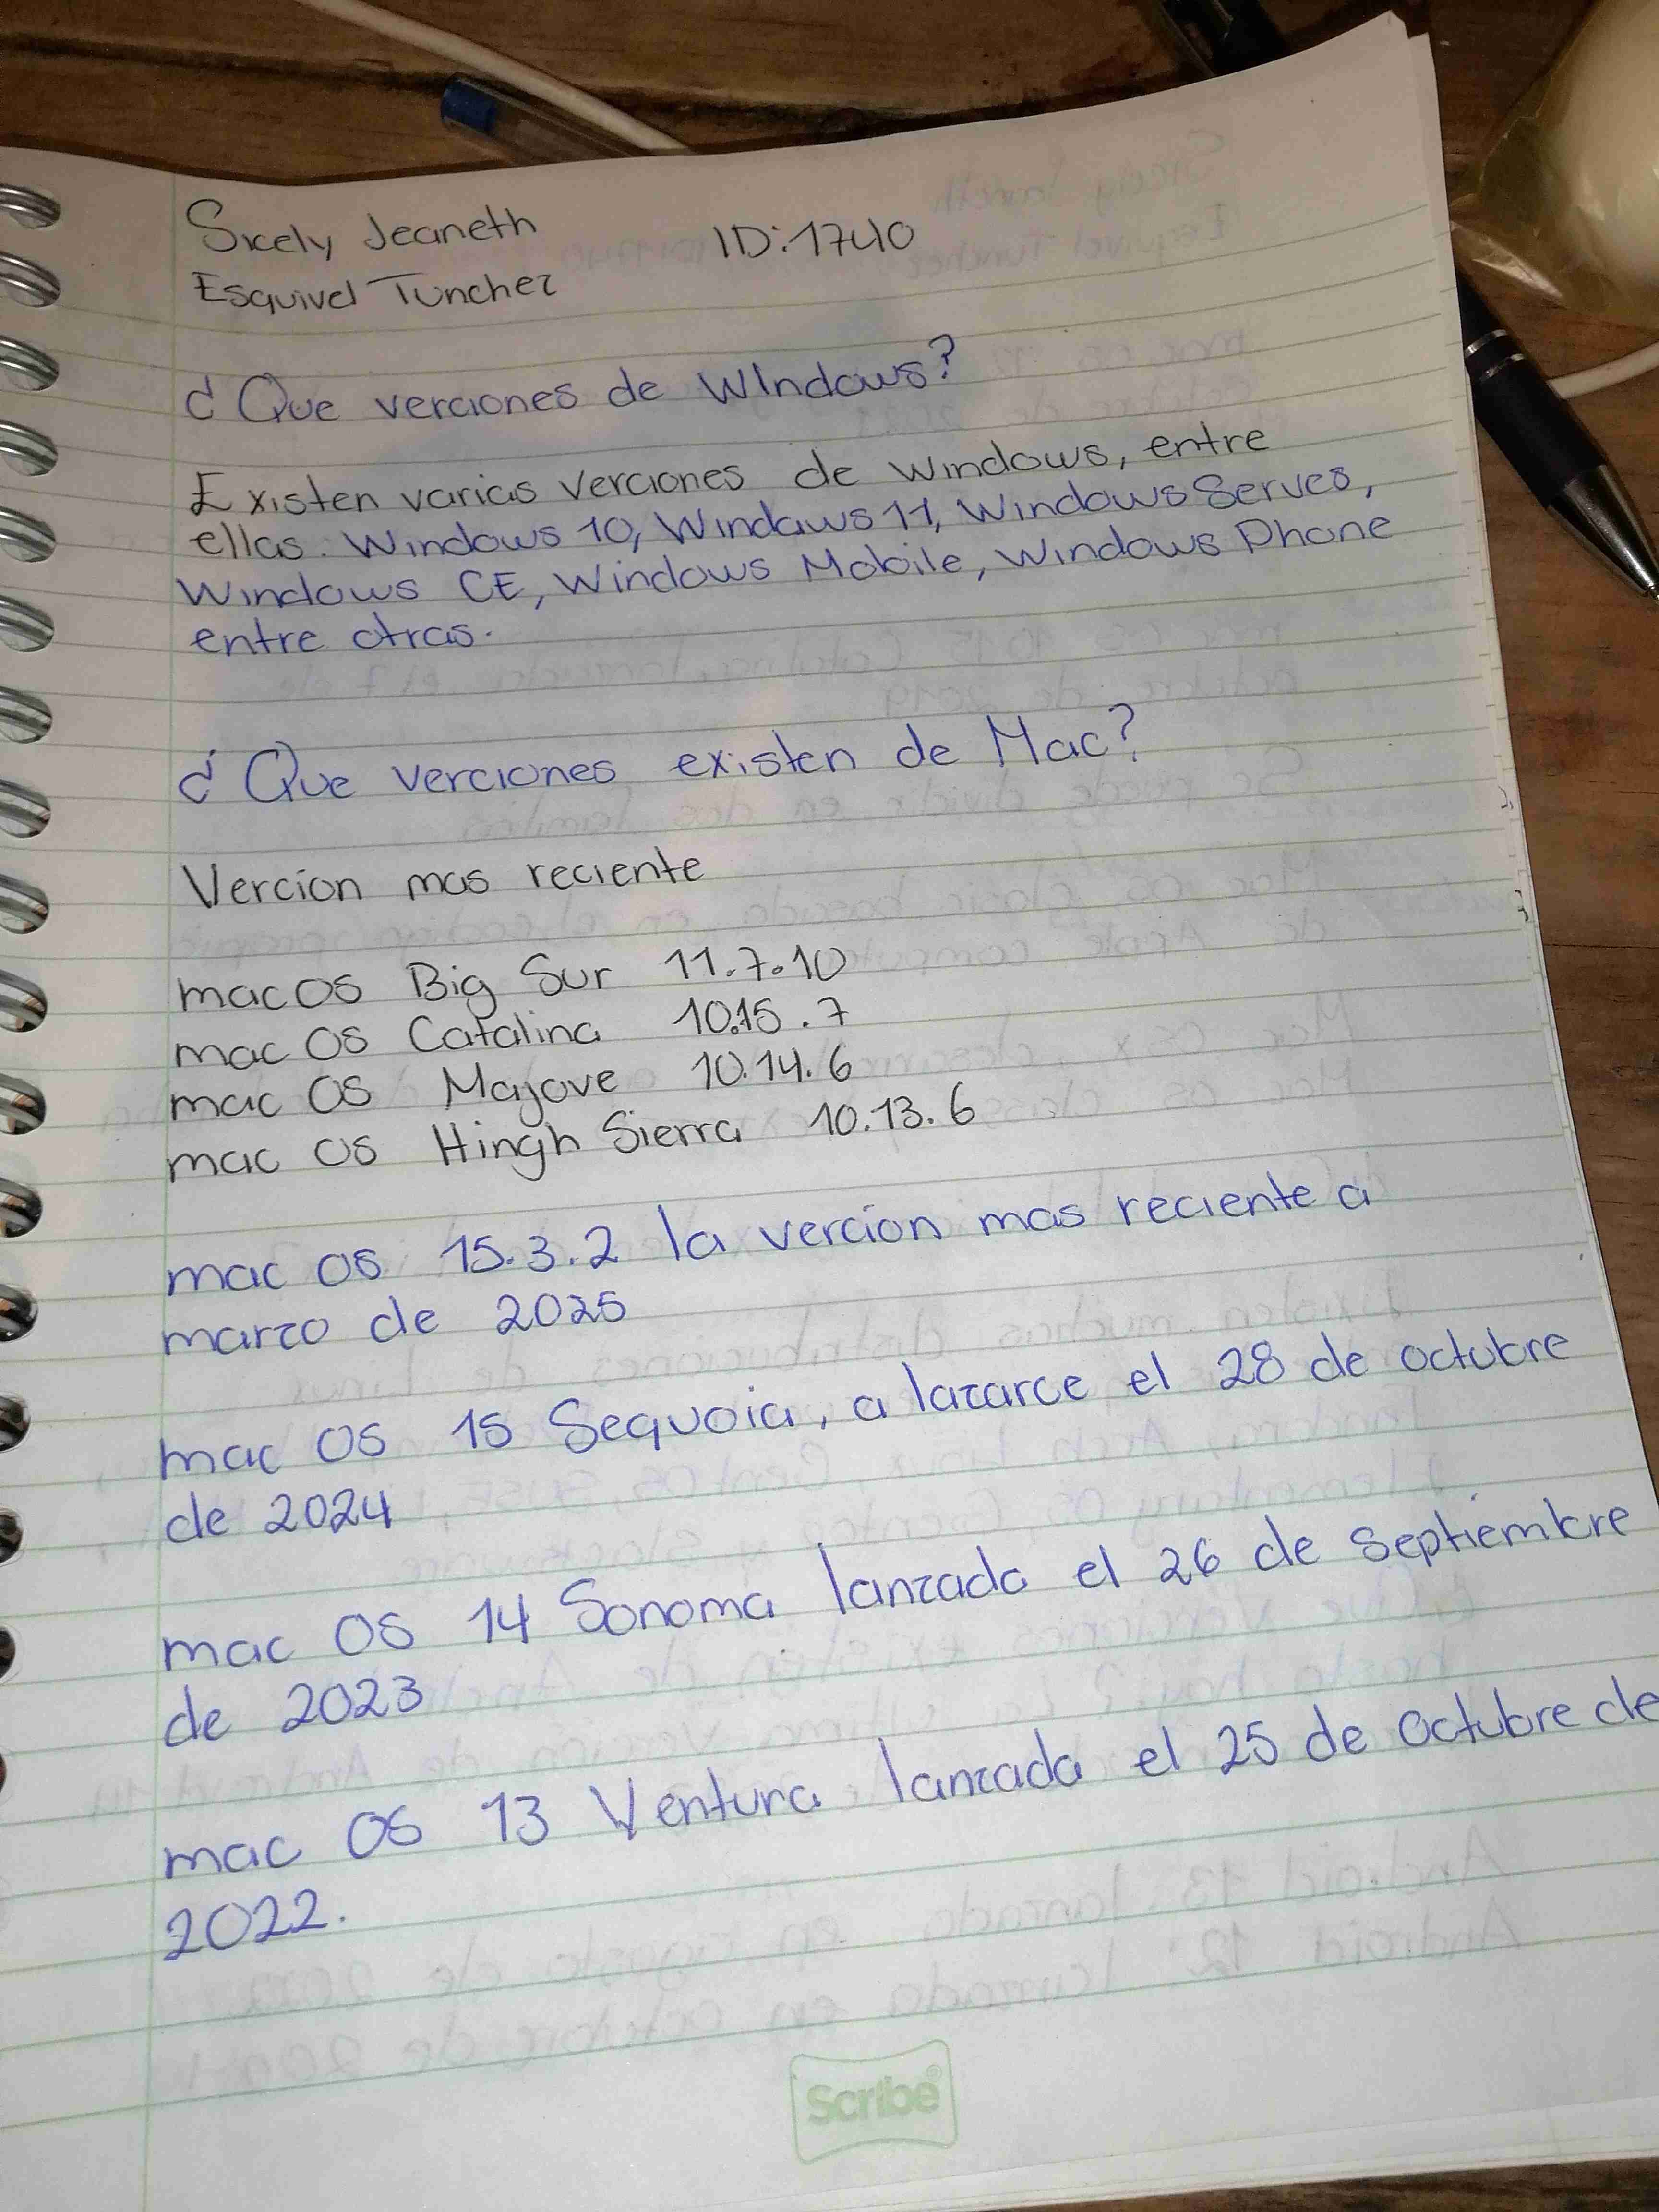 Sicely Jeaneth ID:1740
Esquivel Tuncher
¿Que verciones de WIndows?
Existen varias verciones de windows, entre
ellas: Windows 10, Windows 11, Windows Serves,
Windows CE, Windows Mobile, Windows Phone
entre otras.
¿Que verciones existen de Mac?
Vercion mas reciente
macOS Big Sur 11.7.10
mac OS Catalina 10.15.7
mac OS Majove 10.14.6
mac OS Hingh Sierra 10.13.6
mac OS 15.3.2 la vercion mas reciente a
marzo de 2025
mac OS 15 Sequoia, a lazarce el 28 de octubre
de 2024
mac OS 14 Sonoma lanzado el 26 de septiembre
de 2023
mac OS 13 Ventura lanzada el 25 de octubre de
2022.
Scribe